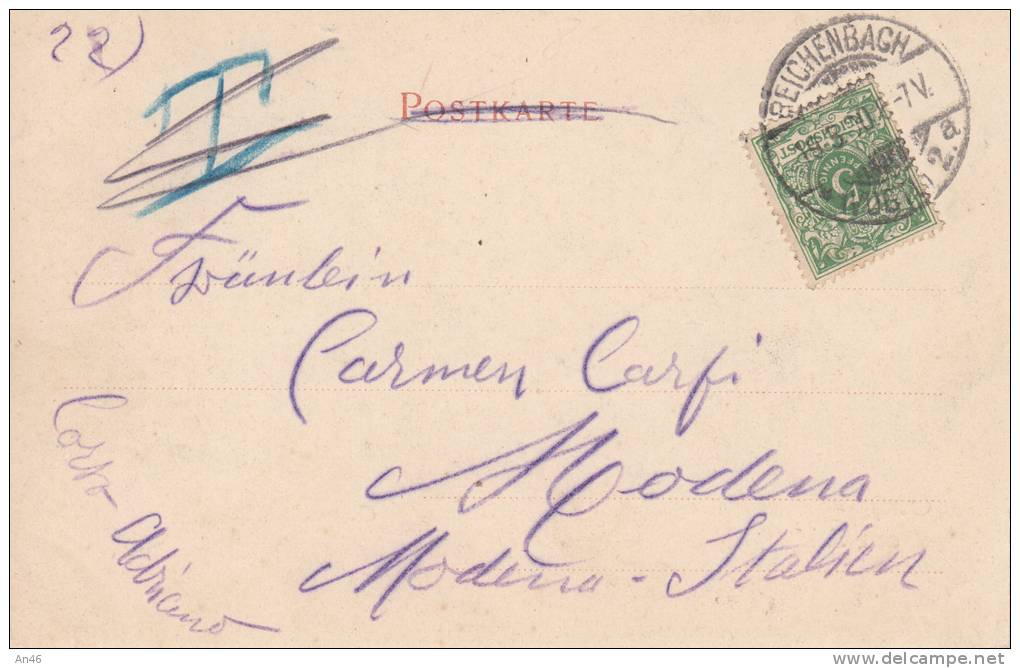 22)
T
POSTKARTE
REICHENBACH
-7V.
2.a
REICHSPOST
5
PFENNIG
Fräulein
Carmen Carfi
Modena
Modena - Italien
Corso Adriano
An46
www.delcampe.net